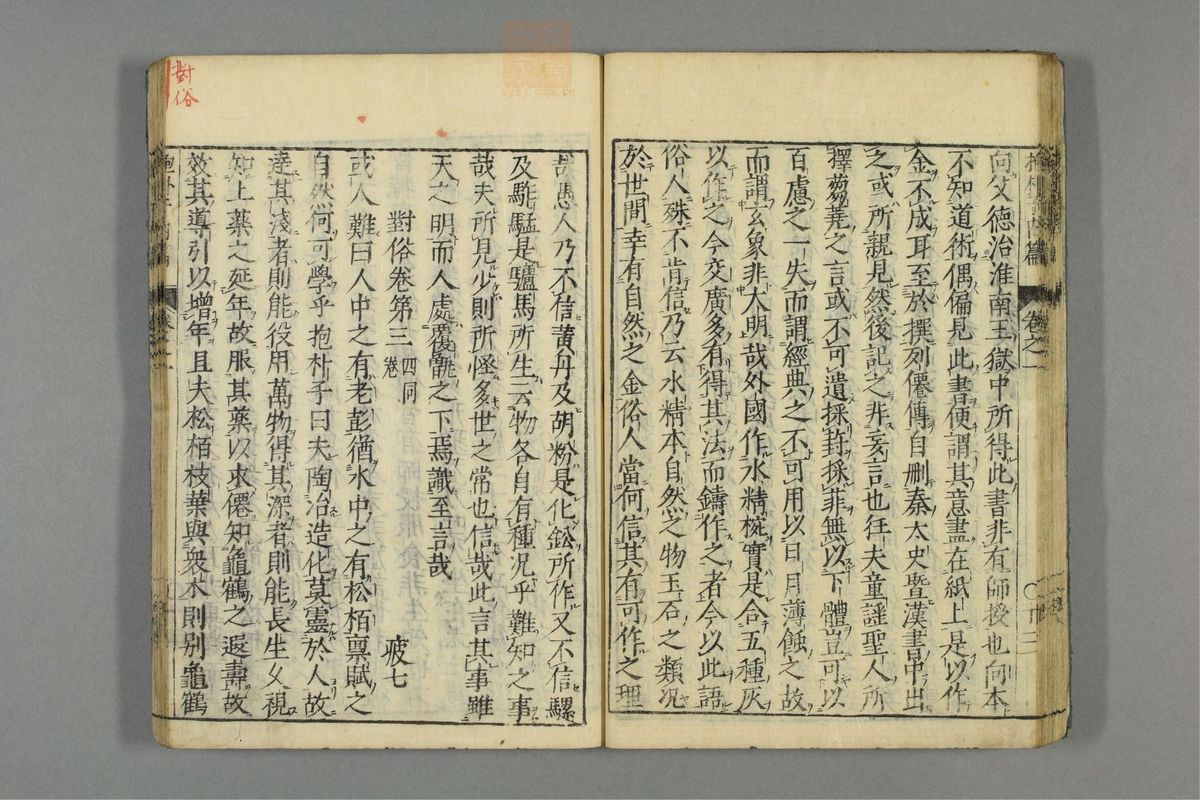 向父德治淮南王獄中所得此書非有師授也向本
不知道術偶偏見此書便謂其意盡在紙上是以作
金不成耳至於撰列僊傳自刪秦太史暨漢書中出
之或所親見然後記之非妄言也狂夫童謠聖人所
擇蒭蕘之言或不可遺採葑採菲無以下體豈可以
百慮之一失而謂經典之不可用以日月薄蝕之故
而謂玄象非大明哉外國作水精椀實是合五種灰
以作之今交廣多有得其法而鑄作之者今以此語
俗人殊不肯信乃云水精本自然之物玉石之類况
於世間幸有自然之金俗人當何信其有可作之理
卷之一
哉愚人乃不信黃丹及胡粉是化鉛所作又不信騾
及駏驉是驢馬所生云物各自有種况乎難知之事
哉夫所見少則所怪多世之常也信哉此言其事雖
天之明而人處覆甑之下焉識至言哉
對俗卷第三 四同卷 疲七
或人難曰人中之有老彭猶水中之有松栢稟賦之
自然何可學乎抱朴子曰夫陶冶造化莫靈於人故
達其淺者則能役用萬物得其深者則能長生久視
知上藥之延年故服其藥以求僊知龜鶴之遐壽故
效其導引以增年且夫松栢枝葉與衆木則別龜鶴
對俗